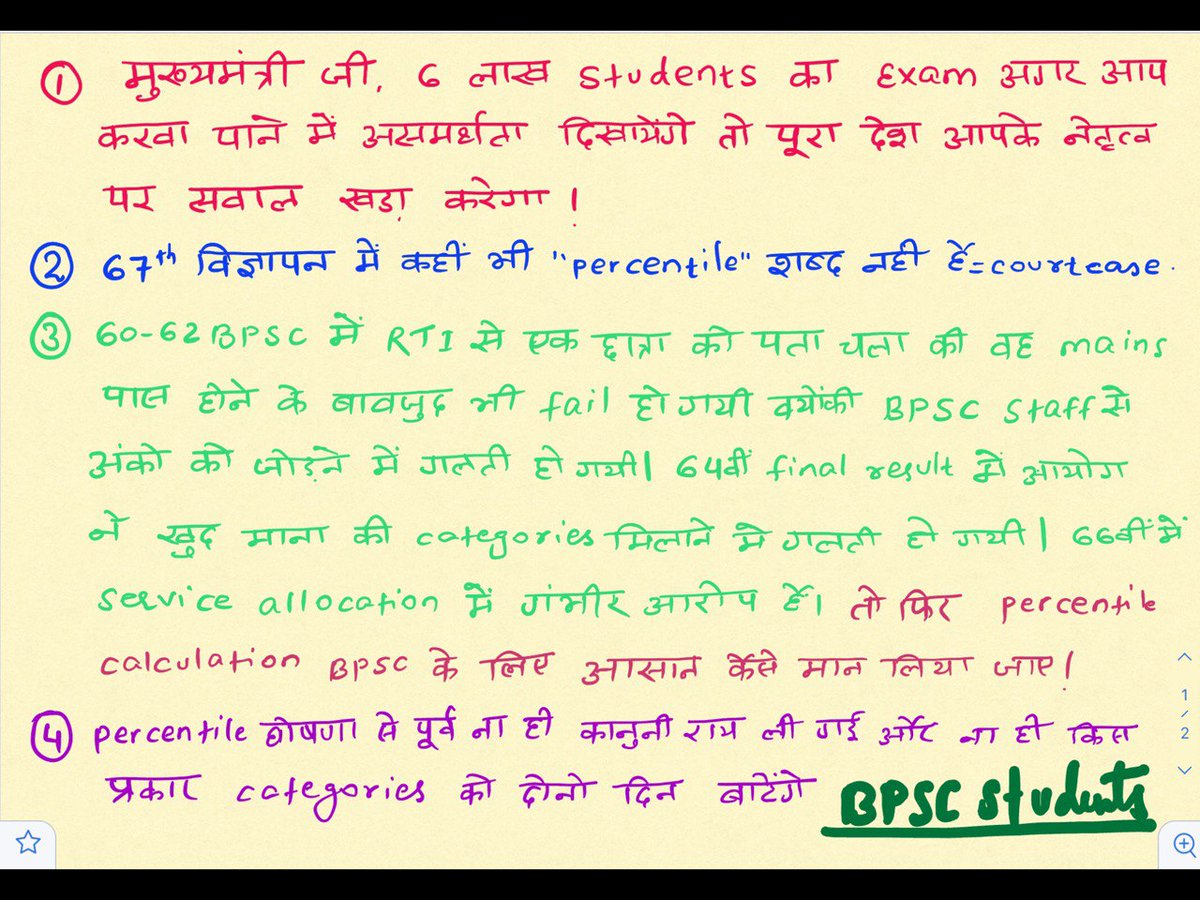 ① मुख्यमंत्री जी, 6 लाख students का Exam अगर आप
करवा पाने में असमर्थता दिखायेंगे तो पूरा देश आपके नेतृत्व
पर सवाल खडा़ करेगा !
② 67th विज्ञापन में कहीं भी "percentile" शब्द नही हैं=courtcase.
③ 60-62 BPSC में RTI से एक छात्रा को पता चला की वह mains
पास होने के बावजुद भी fail हो गयी क्योंकी BPSC Staff से
अंको को जोड़ने में गलती हो गयी| 64वीं final result में आयोग
ने खुद माना की categories मिलाने मे गलती हो गयी | 66वीं में
service allocation में गंभीर आरोप हैं। तो फिर percentile
calculation BPSC के लिए आसान कैसे मान लिया जाए !
④ percentile घोषणा से पूर्व ना ही कानुनी राय ली गई और ना ही किस
प्रकार categories को दोनो दिन बाटेंगे
BPSC students
1
/
2